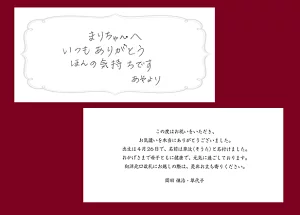 まりちゃんへ
いつもありがとう
ほんの気持ちです
あそより
この度はお祝いをいただき、
お気遣いを本当にありがとうございました。
出生は4月26日で、名前は草汰(そうた)と名付けました。
おかげさまで母子ともに健康で、元気に過ごしております。
お越しの際は、是非お立ち寄りください。